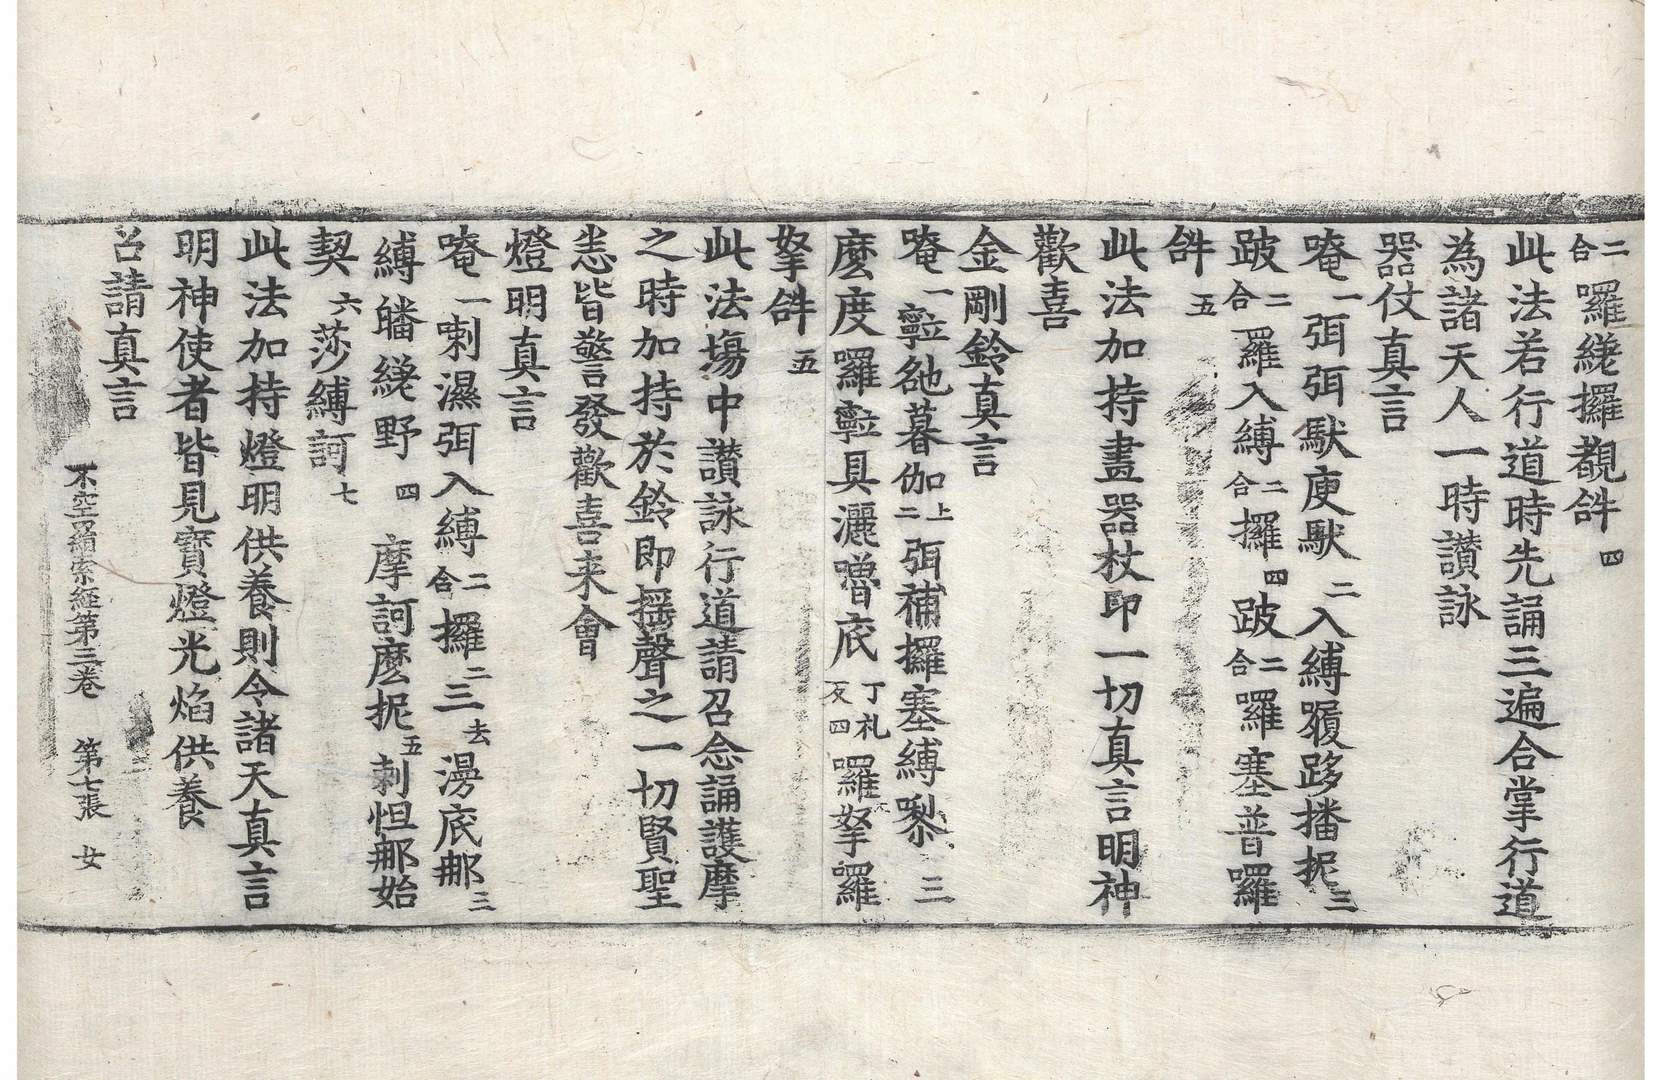 二合囉緂攞覩𤙖四
此法若行道時先誦三遍合掌行道
為諸天人一時讃詠
器仗真言
唵一弭弭馱庾馱二入縛履跢播抳三
跛二合羅入縛二合攞四跛二合囉塞普囉
𤙖五
此法加持畫器杖印一切真言明神
歡喜
金剛鈴真言
唵一䩭毦暮伽上二弭補攞塞縛㗚三
麽度羅䩭具灑嚕底丁礼反四囉拏囉
拏𤙖五
此法塲中讃詠行道請召念誦護摩
之時加持於鈴即揺聲之一切賢聖
恙皆警發歡喜来會
燈明真言
唵一喇濕弭入縛二合攞二三去漫底那三
縛皤緂野四摩訶麽抳五刺怛那始
契六莎縛訶七
此法加持燈明供養則令諸天真言
明神使者皆見寳燈光焰供養
召請真言
不空羂索経第三卷 第七張 女